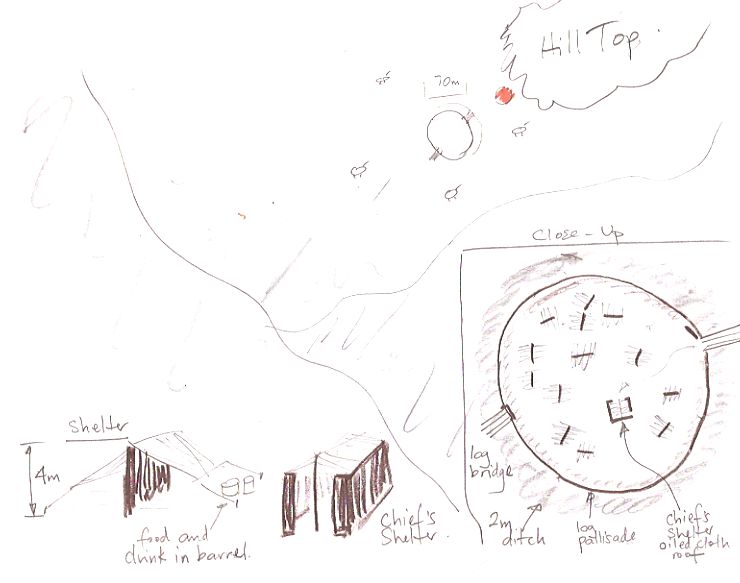 Hill Top.
70m
Close-Up
Shelter
4m
food and
drink in barrel.
Chief's
Shelter.
log
bridge
2m
ditch
log
pallisade
chief's
shelter
oiled cloth
roof